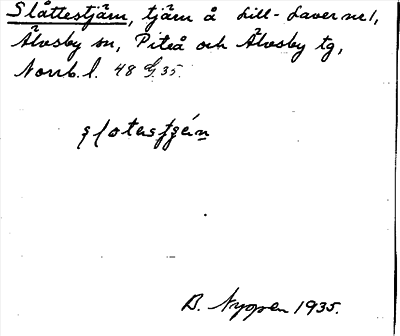 Slåttestjärn, tjärn å Lill-Lavernel,
Älvsby sn, Piteå och Älvsby tg,
Norrb. l. 48 G. 35.
B. Nyopen 1935.